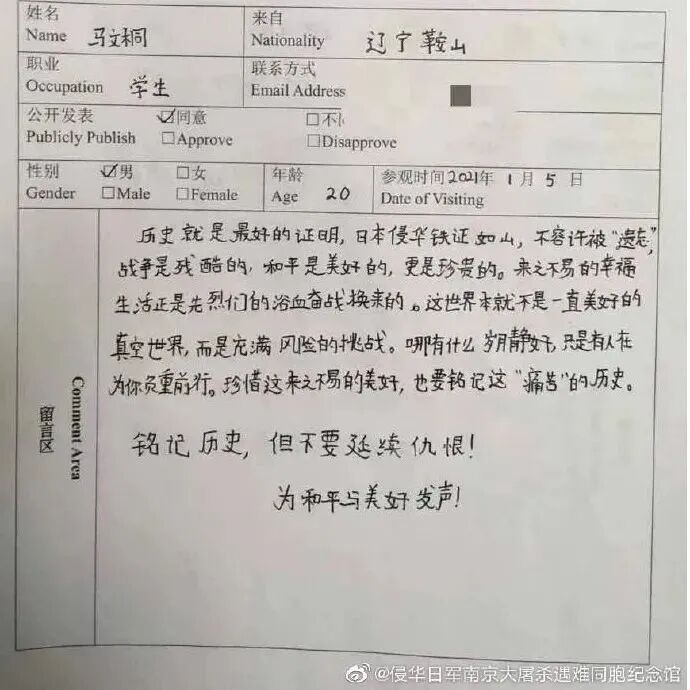 姓名 来自
Name 马文桐 Nationality 辽宁鞍山
职业 联系方式
Occupation 学生 Email Address
公开发表 ☑同意 □不
Publicly Publish □Approve □Disapprove
性别 ☑男 □女 年龄 参观时间 2021年 1月 5日
Gender □Male □Female Age 20 Date of Visiting
历史就是最好的证明,日本侵华铁证如山,不容许被“遗忘”,
战争是残酷的,和平是美好的,更是珍贵的。来之不易的幸福
生活正是先烈们的浴血奋战换来的。这世界本就不是一直美好的
真空世界,而是充满风险的挑战。哪有什么岁月静好,只是有人在
为你负重前行。珍惜这来之不易的美好,也要铭记这“痛苦”的历史。
铭记历史,但不要延续仇恨!
为和平与美好发声!
留言区
Comment Area
@侵华日军南京大屠杀遇难同胞纪念馆